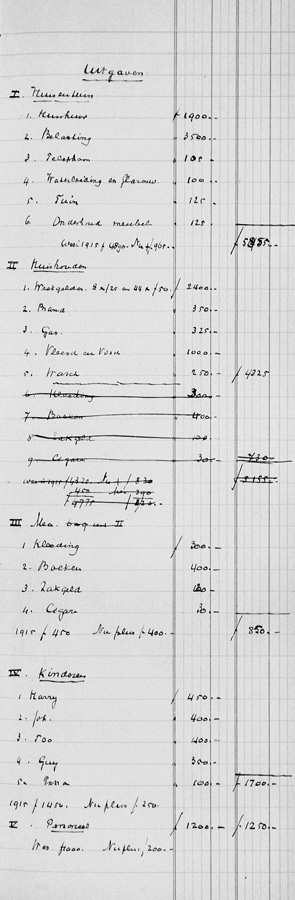 Uitgaven
I. Huis en tuin
1. Huishuur f 1900.-
2. Belasting " 3500.-
3. Telephoon " 105 -
4. Waterleiding en " 100.-
5. Tuin " 125
6. Onderhoud meubel " 125
was 1915 f 4890. Nu f 965.- f 5855.-
II Huishouden
1. Weekgelden. 8 x 125 en 44 x f 50. f 2400.-
2. Brand " 350.-
3. Gas. " 325.-
4. Vleesch en Visch " 1000.-
5. Wasch " 250.- f 4325
6 Kleeding 300.-
7. Boeken 400.-
8 Zakgeld 100
9 Cigars 30 - 730
was 1915 f 4325 Nu f 830 f 5155.-
f 450
f 4775
III II
1 Kleeding f 300.-
2. Boeken 400.-
3. Zakgeld
4. Cigars
1915 f 450 Nu plus f 400.- f 850.-
IV. Kinderen
1 Harry f 450.-
2. Joh. " 400.-
3. " 400.-
4. Guy " 350.-
5. " 100.- f 1700.-
1915 f 1450. Nu plus f 250.
V. Personeel f 1200.- f 1250.-
Was f 1000. Nu plus f 200.-